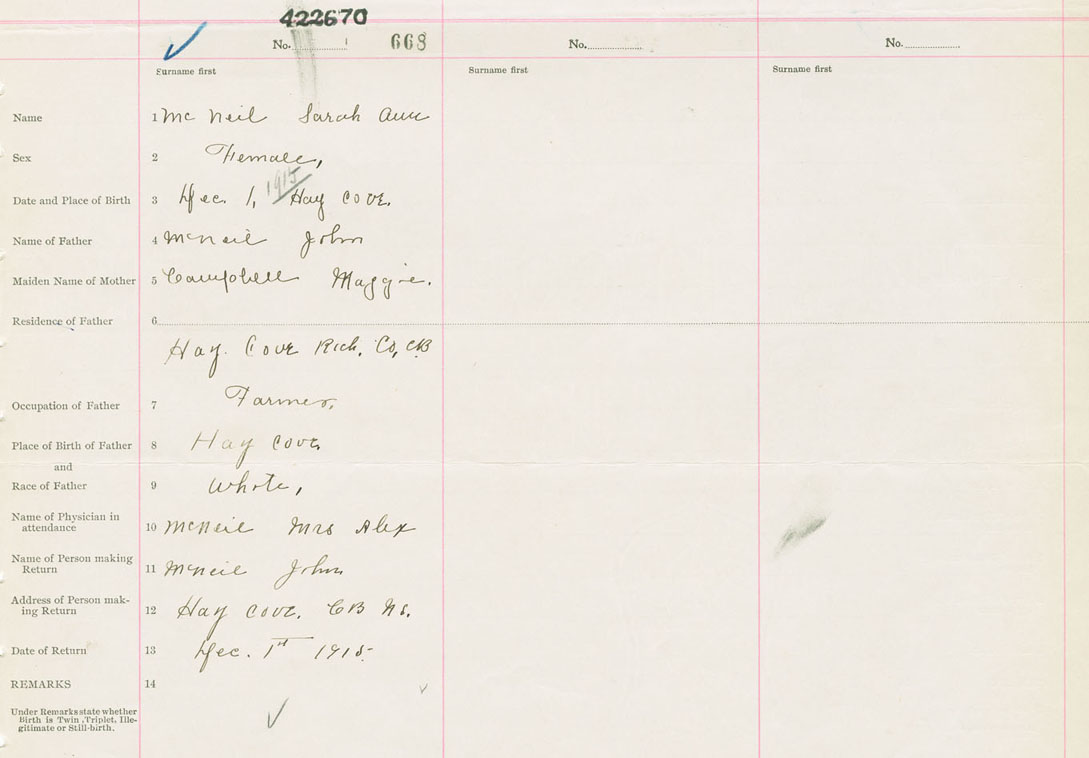 422670
No. 668 No. No.
Surname first Surname first Surname first
Name 1 McNeil Sarah Ann
Sex 2 Female,
1915
Date and Place of Birth 3 Dec. 1, Hay Cove.
Name of Father 4 McNeil John
Maiden Name of Mother 5 Campbell Maggie.
Residence of Father 6
Hay Cove Rich. Co, CB
Occupation of Father 7 Farmer,
Place of Birth of Father 8 Hay Cove
and
Race of Father 9 White,
Name of Physician in
attendance 10 McNeil Mrs Alex
Name of Person making
Return 11 McNeil John
Address of Person mak-
ing Return 12 Hay Cove. CB Ns.
Date of Return 13 Dec. 1st 1915
REMARKS 14
Under Remarks state whether
Birth is Twin, Triplet, Ille-
gitimate or Still-birth.